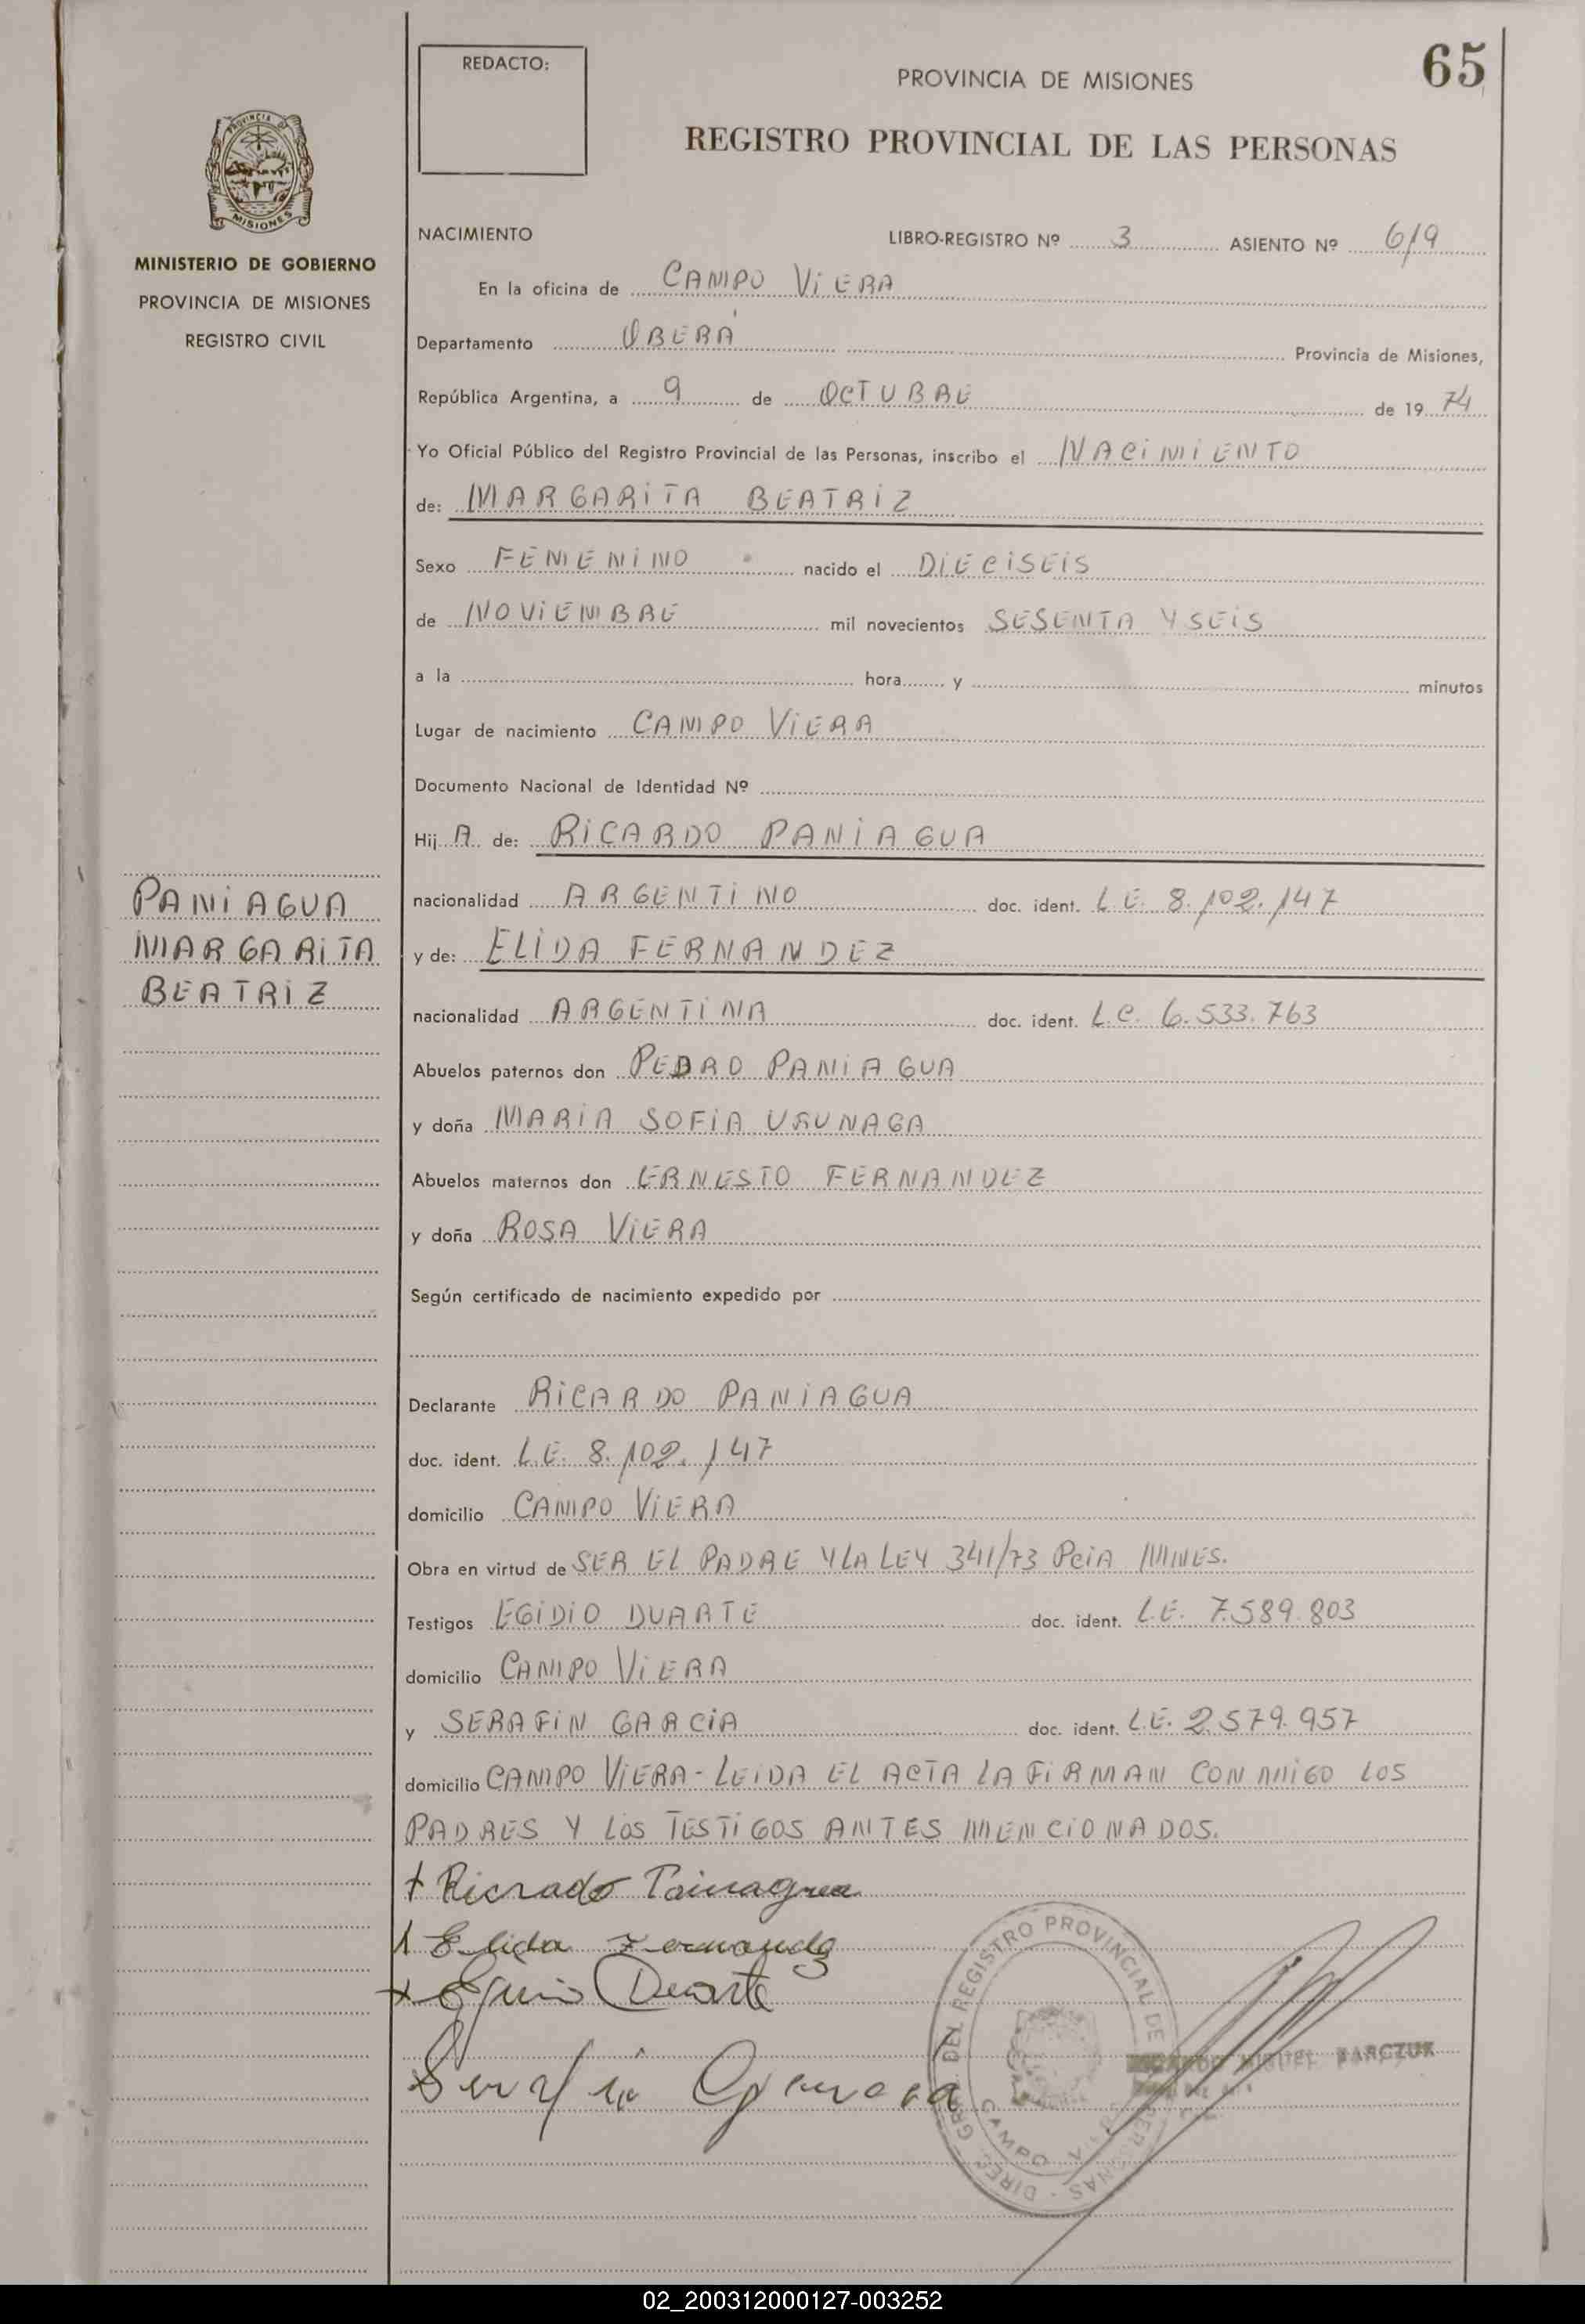 REDACTO:
PROVINCIA DE MISIONES
65
REGISTRO PROVINCIAL DE LAS PERSONAS
PROVINCIA DE
MISIONES
MINISTERIO DE GOBIERNO
PROVINCIA DE MISIONES
REGISTRO CIVIL
NACIMIENTO LIBRO-REGISTRO Nº 3 ASIENTO Nº 619
En la oficina de CAMPO VIERA
Departamento OBERÁ Provincia de Misiones,
República Argentina, a 9 de OCTUBRE de 19 74
Yo Oficial Público del Registro Provincial de las Personas, inscribo el NACIMIENTO
de: MARGARITA BEATRIZ
Sexo FEMENINO nacido el DIECISEIS
de NOVIEMBRE mil novecientos SESENTA Y SEIS
a la hora y minutos
Lugar de nacimiento CAMPO VIERA
Documento Nacional de Identidad Nº
Hij A de: RICARDO PANIAGUA
PANIAGUA
MARGARITA
BEATRIZ
nacionalidad ARGENTINO doc. ident. L.E. 8.102.147
y de: ELIDA FERNANDEZ
nacionalidad ARGENTINA doc. ident. L.C. 6.533.763
Abuelos paternos don PEDRO PANIAGUA
y doña MARIA SOFIA URUNAGA
Abuelos maternos don ERNESTO FERNANDEZ
y doña ROSA VIERA
Según certificado de nacimiento expedido por
Declarante RICARDO PANIAGUA
doc. ident. L.E. 8.102.147
domicilio CAMPO VIERA
Obra en virtud de SER EL PADRE Y LA LEY 341/73 PCIA MNES.
Testigos EGIDIO DUARTE doc. ident. L.E. 7.589.803
domicilio CAMPO VIERA
y SERAFIN GARCIA doc. ident. L.E. 2.579.957
domicilio CAMPO VIERA - LEIDA EL ACTA LA FIRMAN CONMIGO LOS
PADRES Y LOS TESTIGOS ANTES MENCIONADOS.
Ricrado
Elida
Duarte
DIREC. GRAL. DEL REGISTRO PROVINCIAL DE PERSONAS
CAMPO
MIGUEL BARCZUK
02_200312000127-003252